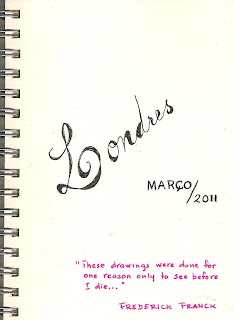 Londres
MARÇO/2011
"These drawings were done for
one reason only to see before
I die..."
FREDERICK FRANCK